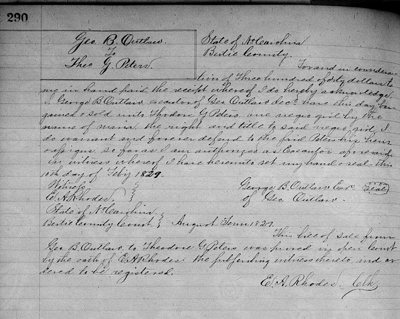 290
Geo B. Outlaw
to
Theo G. Peters
State of No Carolina
Bertie County
For and in considera
tion of Three hundred & fifty dollars to
me in hand paid the receipt whereof I do hereby acknowledge
I George B Outlaw executor of Geo Outlaw decd have this day bar
gained & sold unto Theodore G Peters, one negro girl by the
name of the right and title to said negro girl, I
do warrant and forever defend to the said Peters his heirs
& assigns so far as I am authorized as Executor aforesaid
in witness whereof I have hereunto set my hand & seal this
day of Feby 1827
George B. Outlaw Exr Seal
of Geo Outlaw.
E. A. Rhodes
State of No Carolina
Bertie County Court August Term 1827
This bill of sale from
Geo B. Outlaw to Theodore G Peters was proved in open Court
by the oath of E. A. Rhodes the subscribing witness thereto, and or
dered to be registered.
E. A. Rhodes Clk